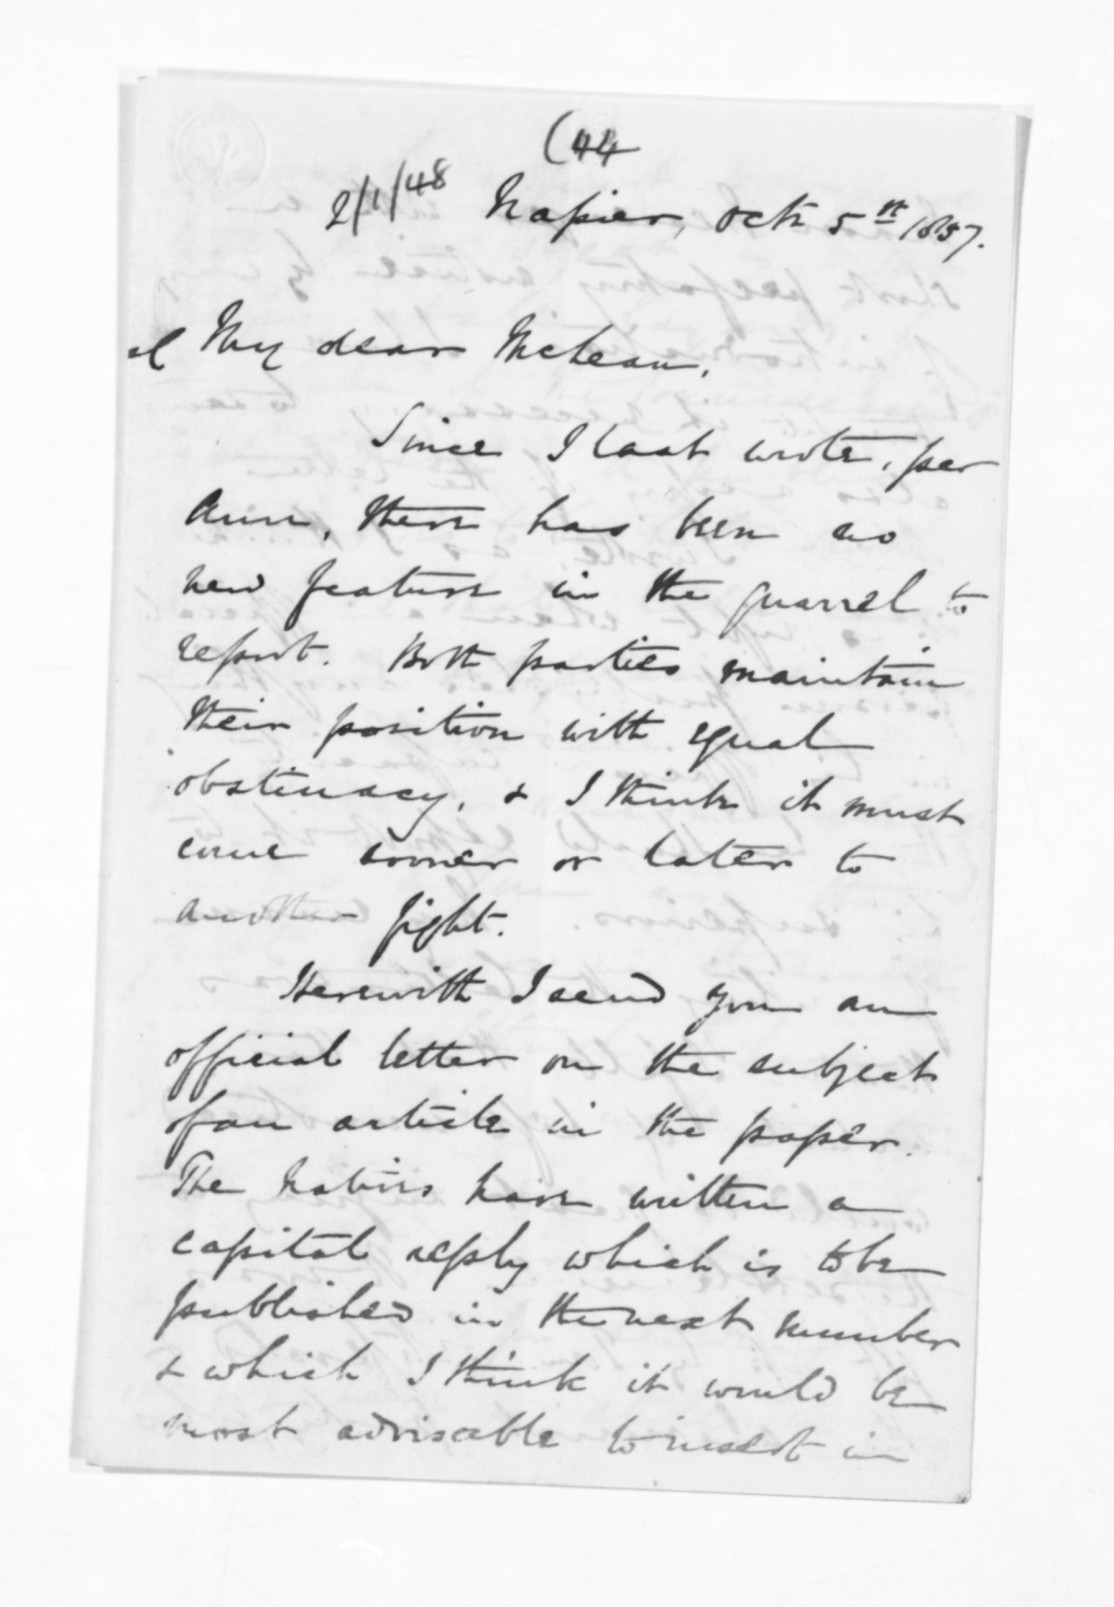 (44
2/1/48 Napier, Octr 5th 1857.
My dear McLean,
Since I last wrote, per
Ann, there has been no
new feature in the quarrel to
report. Both parties maintain
their position with equal
obstinacy, & I think it must
come sooner or later to
another fight.
Herewith I send you an
official letter on the subject
of an article in the paper.
The Natives have written a
capital reply which is to be
published in the next number
& which I think it would be
most advisable to insert in